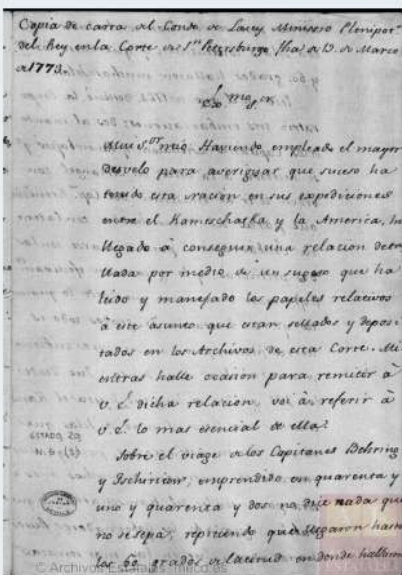 Copia de carta del Conde de Lacey Ministro Plenipot.º
del Rey en la Corte de S.n Petersburgo fha à 19. de Marzo
de 1773.
Ex.mo S.or
Mui s.or mio Haviendo empleado el mayor
desvelo para averiguar que suceso ha
tenido esta nacion en sus expediciones
entre el Kameschatka y la America, he
llegado à conseguir una relacion deta
llada por medio de un sugeto que ha
leido y manejado los papeles relativos
à este asunto que estan sellados y deposi
tados en los Archivos de esta Corte. Mi
entras halle ocasion para remitir à
V. E. dicha relacion, voi à referir à
V. E. lo mas esencial de ella.
Sobre el viage de los Capitanes Behring
y Tschiricow, emprendido en quarenta y
uno y quarenta y dos no dice nada que
no se sepa, repitiendo que llegaron hasta
los 60 grados de latitud en donde hallaron
© Archivos Estatales, mecd.es